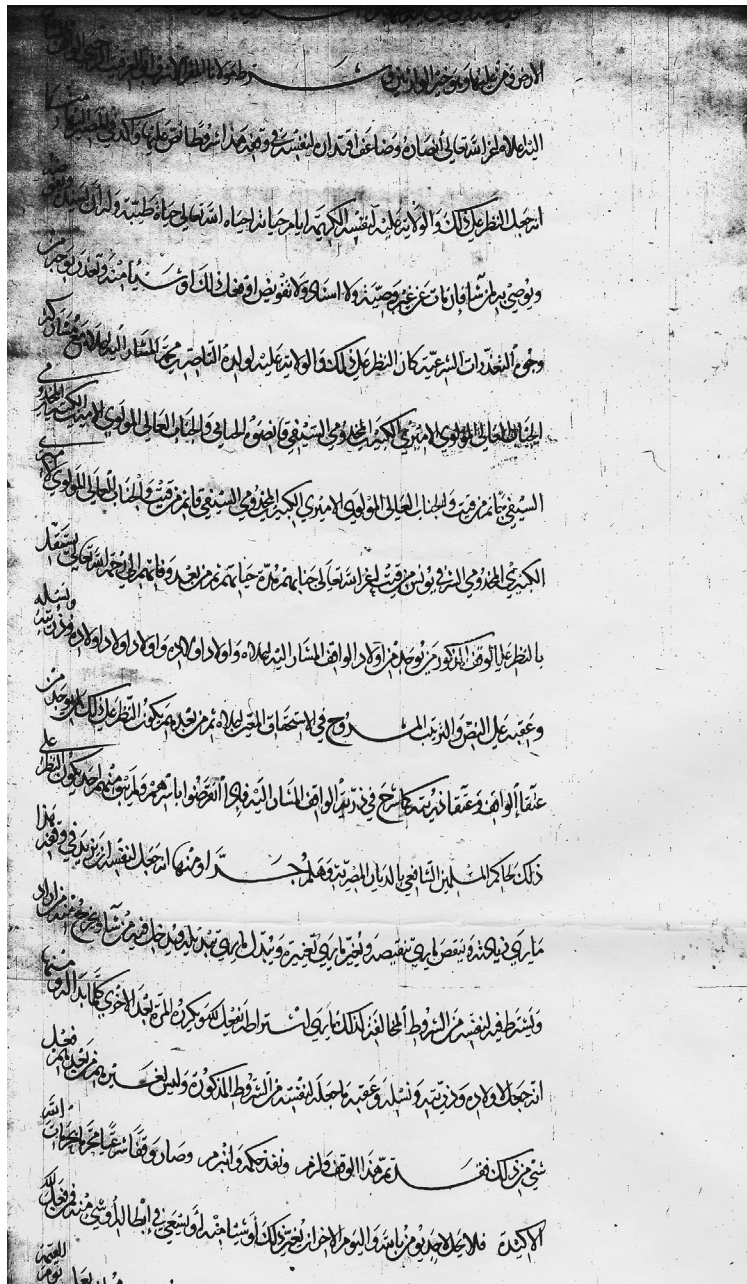 الارض ومن عليها وهو خير الوارثين وشرط مولانا المقر الاشرف
اليه اعلاه اعز الله تعالى انصاره وضاعف اقتداره لنفسه في وقفه هذا شروطا نص عليها واكد في العمل بها منها
انه جعل النظر على ذلك والولاية عليه لنفسه الكريمة ايام حياته احياه الله تعالى حياة طيبة وله ان يسنده
ويوصي به لمن شاء فان مات عن غير وصية ولا اسناد ولا تفويض او فعل ذلك او شيئا منه وتعذر بوجه من
وجوه التعذرات الشرعية كان النظر على ذلك والولاية عليه لولده الناصري محمد المشار اليه اعلاه مع مشاركة
الجناب العالي المولوي الاميري الكبيري المخدومي السيفي قانصوه والجناب العالي المولوي الاميري الكبيري المخدومي
السيفي جانم من قيت والجناب العالي المولوي الاميري الكبيري المخدومي السيفي قانم من قيت والجناب العالي المولوي الاميري
الكبيري المخدومي الشرفي يونس من قيت اعز الله تعالى جنابهم مدة حياتهم ثم من بعد وفاتهم الى رحمة الله تعالى يستقل
بالنظر على الوقف المذكور من يوجد من اولاد الواقف المشار اليه اعلاه واولاد اولاده واولاد اولاد اولاده وذريته ونسله
وعقبه على النص والترتيب المشروح في الاستحقاق المعين اعلاه ثم من بعدهم يكون النظر على ذلك لمن يوجد من
عتقاء الواقف وعتقاء ذريته كما شرح في ذرية الواقف المشار اليه فاذا انقرضوا باسرهم ولم يبق منهم احد يكون النظر على
ذلك لحاكم المسلمين الشافعي بالديار المصرية وهلم جرا ومنها انه جعل لنفسه ان يزيد في وقفه هذا
ما يرى زيادته وينقص ما يرى تنقيصه ويغير ما يرى تغييره ويبدل ما يرى تبديله ويدخل فيه من شاء ويخرج منه من اراد
ويشترط فيه لنفسه من الشروط المخالفة لذلك ما يرى اشتراطه يفعل ذلك ويكرره المرة بعد الاخرى كلما بدا له ومنها
انه جعل لاولاده وذريته ونسله وعقبه ما جعله لنفسه من الشروط المذكورة وليس لغيرهم من بعدهم فعل
شيء من ذلك فقد تم هذا الوقف ولزم ونفذ حكمه وانبرم وصار وقفا شرعيا محرما بحرمات الله
الاكيدة فلا يحل لاحد يؤمن بالله واليوم الاخر ان يغير ذلك او شيئا منه او يسعى في ابطاله او شيء منه فمن فعل ذلك